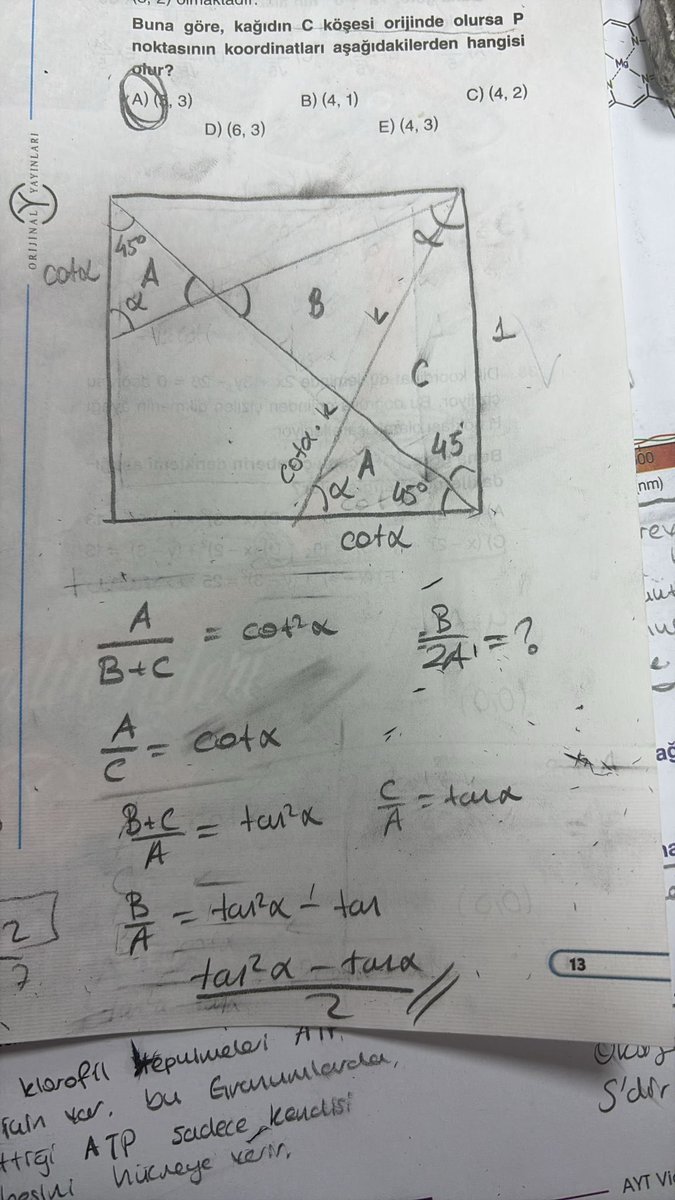 Buna göre, kağıdın C köşesi orijinde olursa P
noktasının koordinatları aşağıdakilerden hangisi
olur?
A) , 3)
B) (4, 1)
C) (4, 2)
D) (6, 3)
E) (4, 3)
ORİJİNAL YAYINLARI
Mg
N
45°
A
cotα
α
α
B
1
C
cotα.k
k
α
A
45°
45°
cotα
A/(B+C) = cot²α
B/2A = ?
A/C = cotα
(B+C)/A = tan²α
C/A = tanα
B/A = tan²α - tan
(tan²α - tanα)/2
13
2
7
00
nm)
klorofil
var. bu Granumlarda,
ATP sadece kendisi
hücreye verir.
Okaz
S'dir
AYT